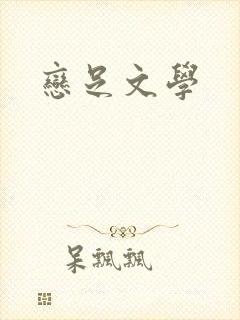 戀足文學
呆飄飄